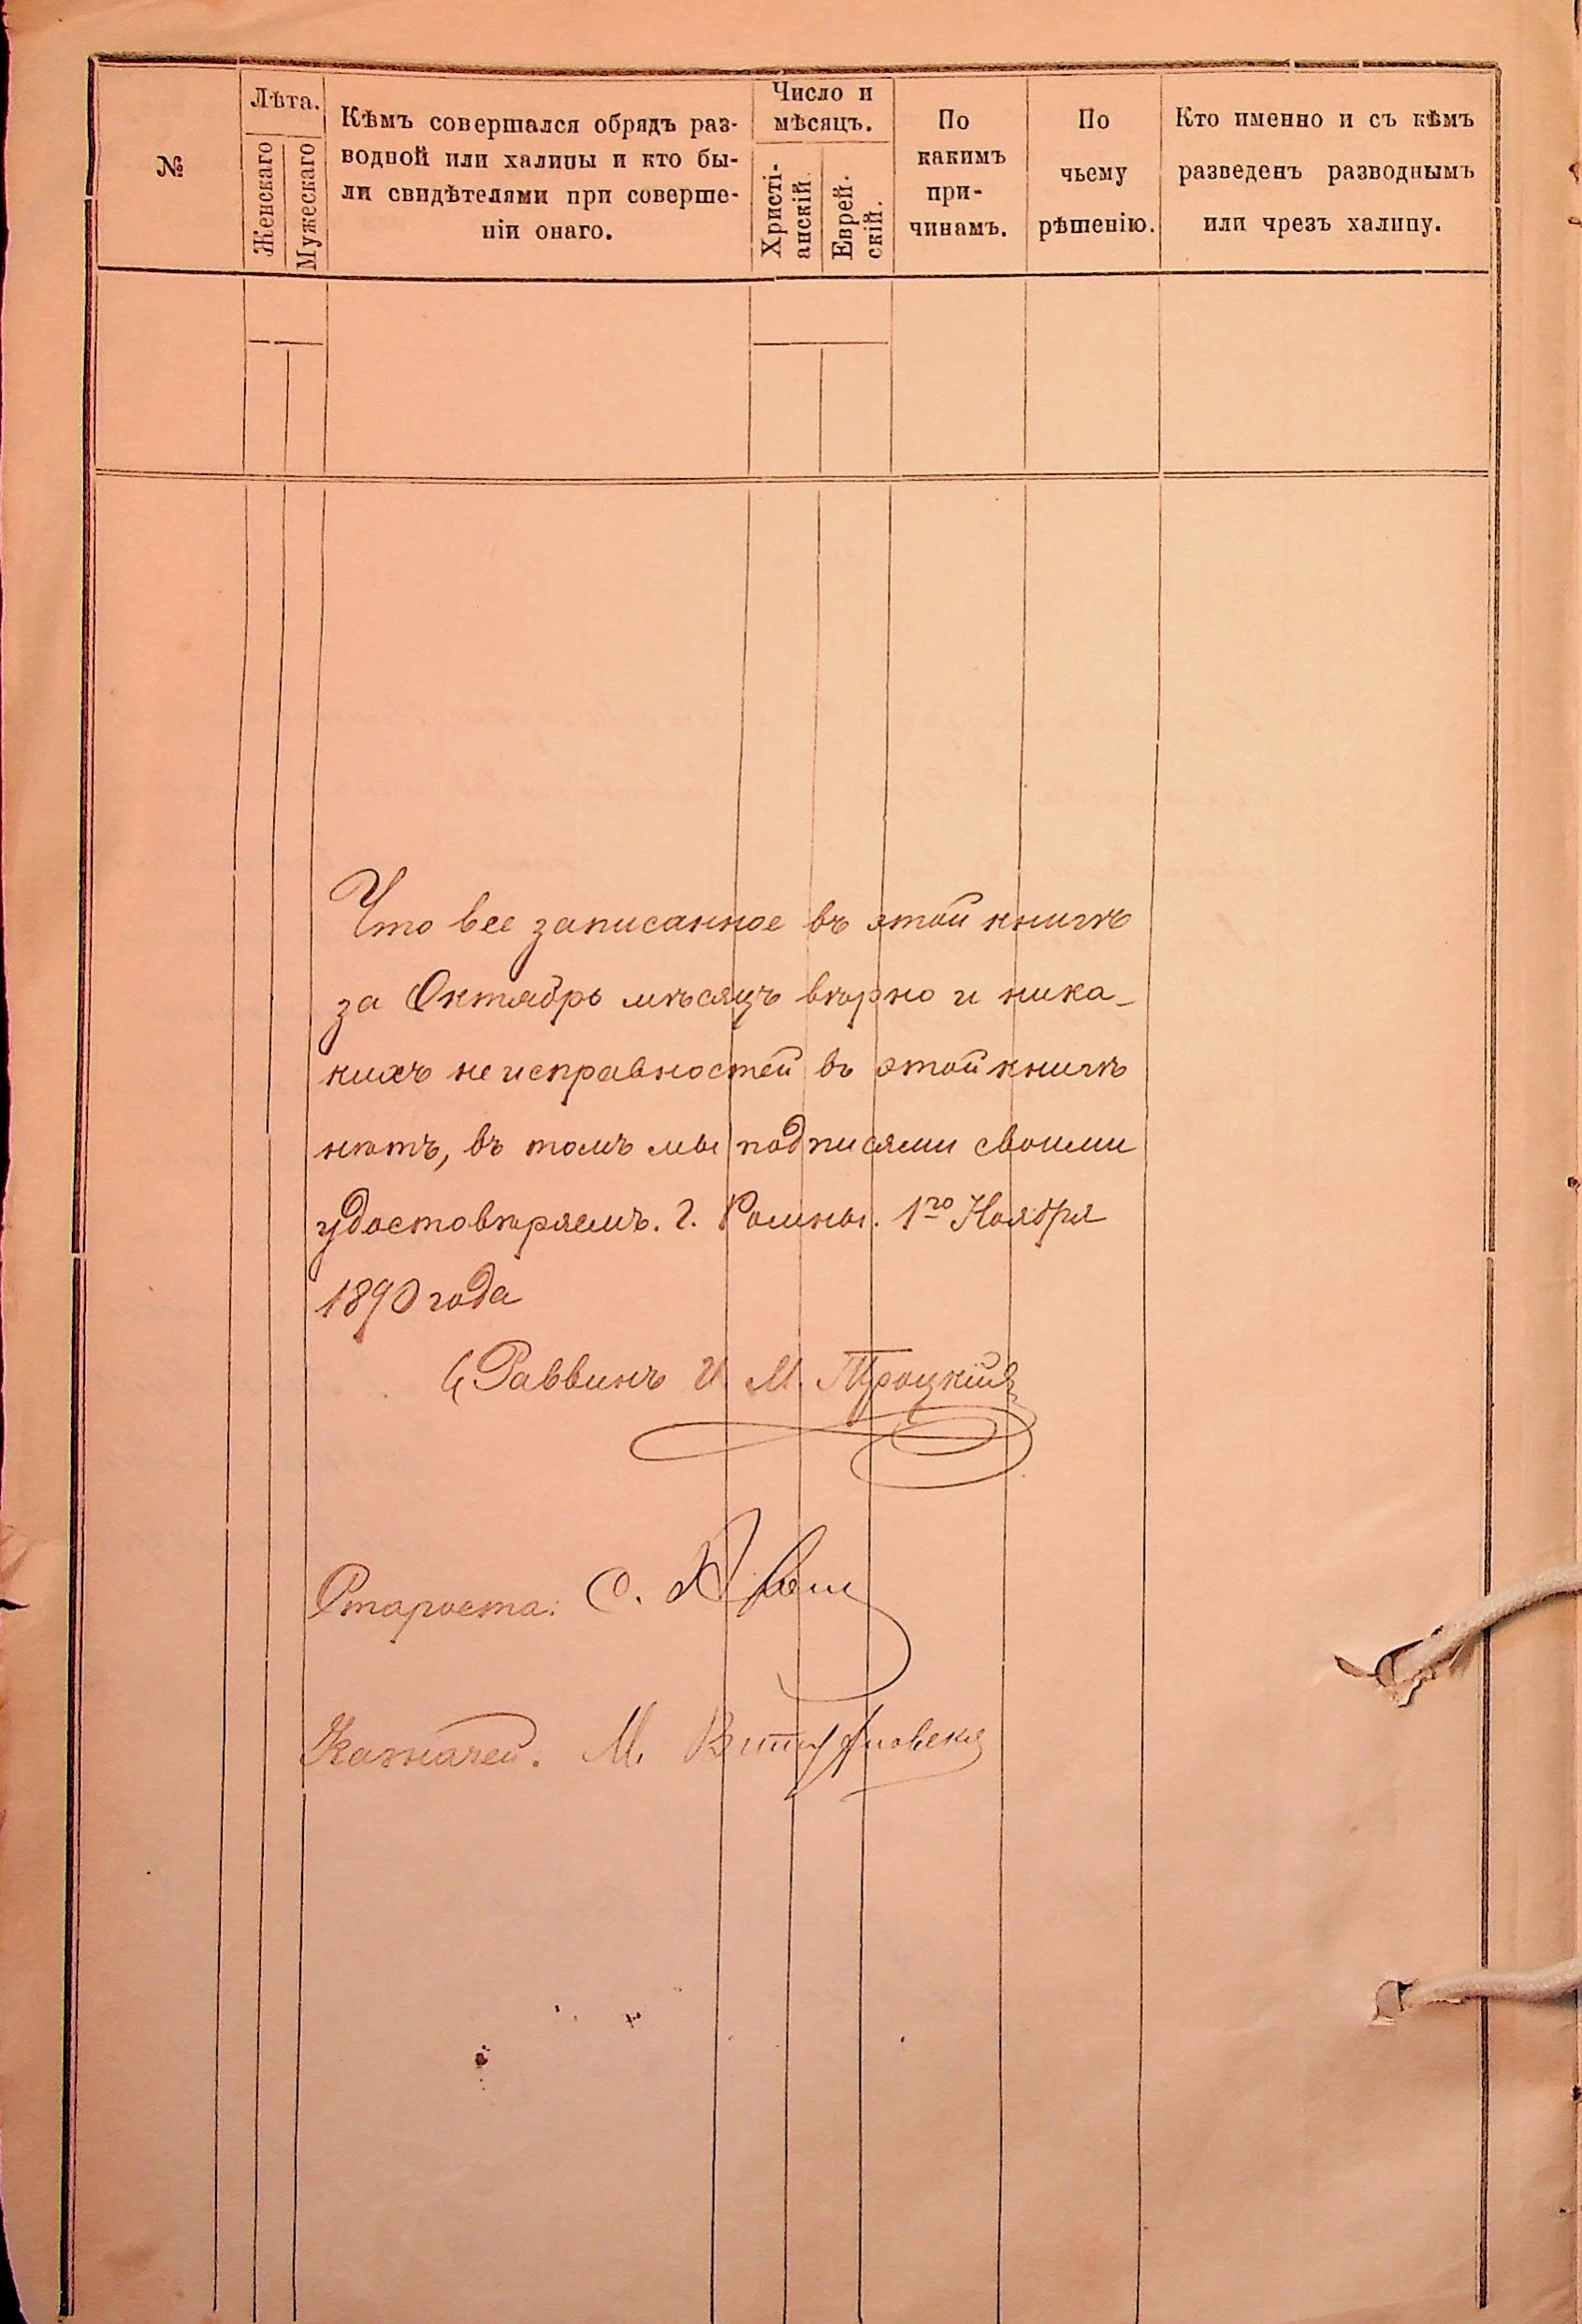 №
Лѣта.
Женскаго
Мужескаго
Кѣмъ совершался обрядъ раз-
водной или халицы и кто бы-
ли свидѣтелями при соверше-
ніи онаго.
Число и
мѣсяцъ.
Христі-
анскій.
Еврей-
скій.
По
какимъ
при-
чинамъ.
По
чьему
рѣшенію.
Кто именно и съ кѣмъ
разведенъ разводнымъ
или чрезъ халицу.
Что все записанное въ этой книгѣ
за Октябрь мѣсяцъ вѣрно и ника-
кихъ неисправностей въ этой книгѣ
нѣтъ, въ томъ мы подписями своими
удостовѣряемъ. г. Ромны. 1го Ноября
1890 года
Раввинъ И. М. Троцкій
Староста: С.
Казначей. М.